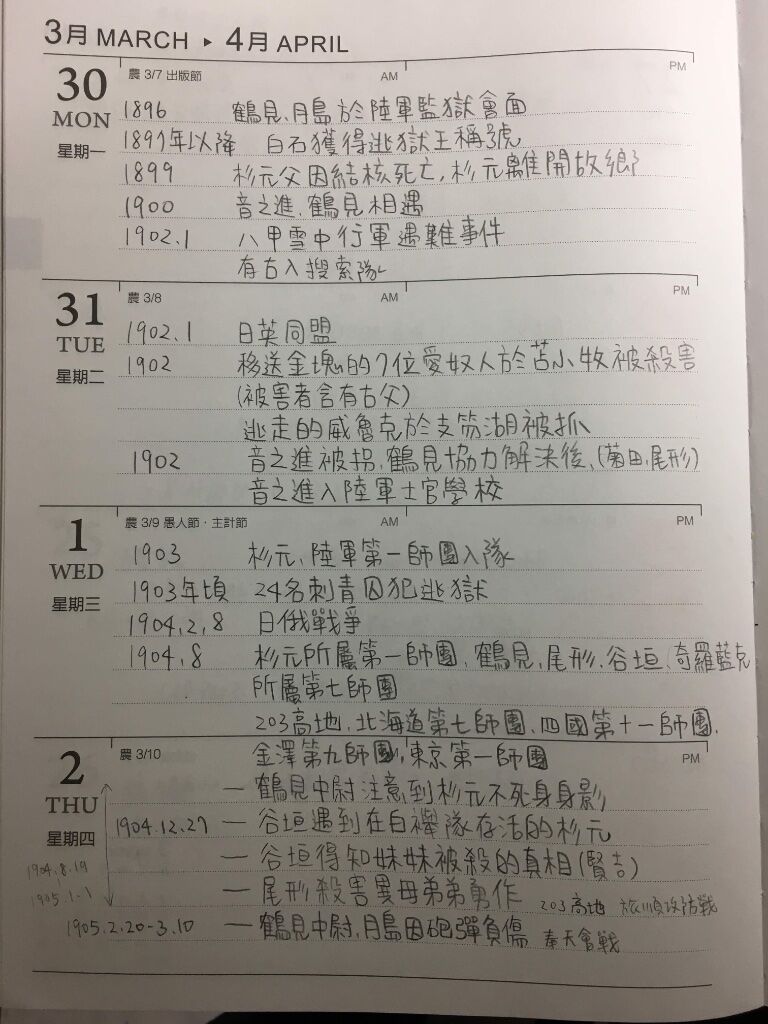 3月 MARCH ▸ 4月 APRIL
30 農 3/7 出版節 AM PM
MON 1896 鶴見、月島於陸軍監獄會面
星期一 1897年以降 白石獲得逃獄王稱號
1899 杉元父因結核死亡,杉元離開故鄉
1900 音之進、鶴見相遇
1902.1 八甲雪中行軍遇難事件
有古入搜索隊
31 農 3/8 AM PM
TUE 1902.1 日英同盟
星期二 1902 移送金塊的7位愛奴人於苫小牧被殺害
(被害者含有古父)
逃走的威魯克於支笏湖被抓
1902 音之進被拐,鶴見協力解決後、(菊田,尾形)
音之進入陸軍士官學校
1 農 3/9 愚人節・主計節 AM PM
WED 1903 杉元、陸軍第一師團入隊
星期三 1903年頃 24名刺青囚犯逃獄
1904,2,8 日俄戰爭
1904,8 杉元所屬第一師團、鶴見、尾形、谷垣、奇羅藍克
所屬第七師團
203高地、北海道第七師團、四國第十一師團、
2 農 3/10 金澤第九師團,東京第一師團 PM
THU — 鶴見中尉注意到杉元不死身身影
星期四 1904.12.27 — 谷垣遇到在白襷隊存活的杉元
1904.8.19 — 谷垣得知妹妹被殺的真相(賢吉)
1905.1.1 — 尾形殺害異母弟弟勇作 203高地 旅順攻防戰
1905.2.20-3.10 — 鶴見中尉,月島因砲彈負傷 奉天會戰